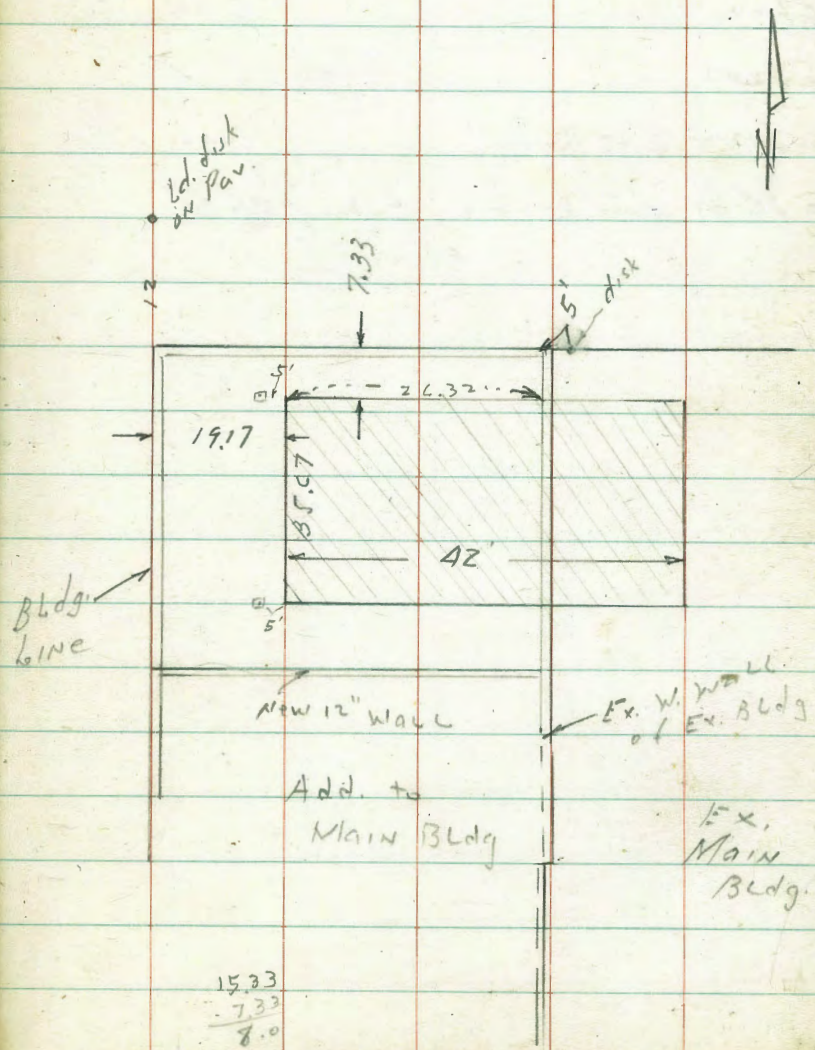 N
Ld. disk
on Pav.
12
7.33
5'
disk
5'
26.32
19.17
35.67
42'
5'
Bldg.
Line
New 12" Wall
Ex. W. Wall
of Ex. Bldg
Add. to
Main Bldg
Ex.
Main
Bldg.
15.33
7.33
8.0